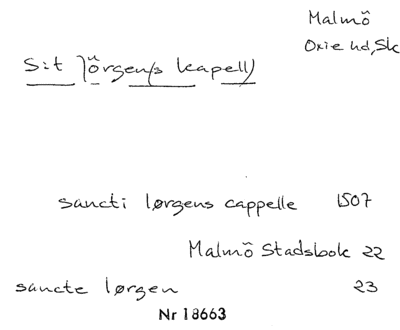 Malmö
Oxie hd, Sk
S:t Jörgen(s kapell)
sancti Iørgens cappelle 1507
Malmö Stadsbok 22
sancte Iørgen 23
Nr 18663